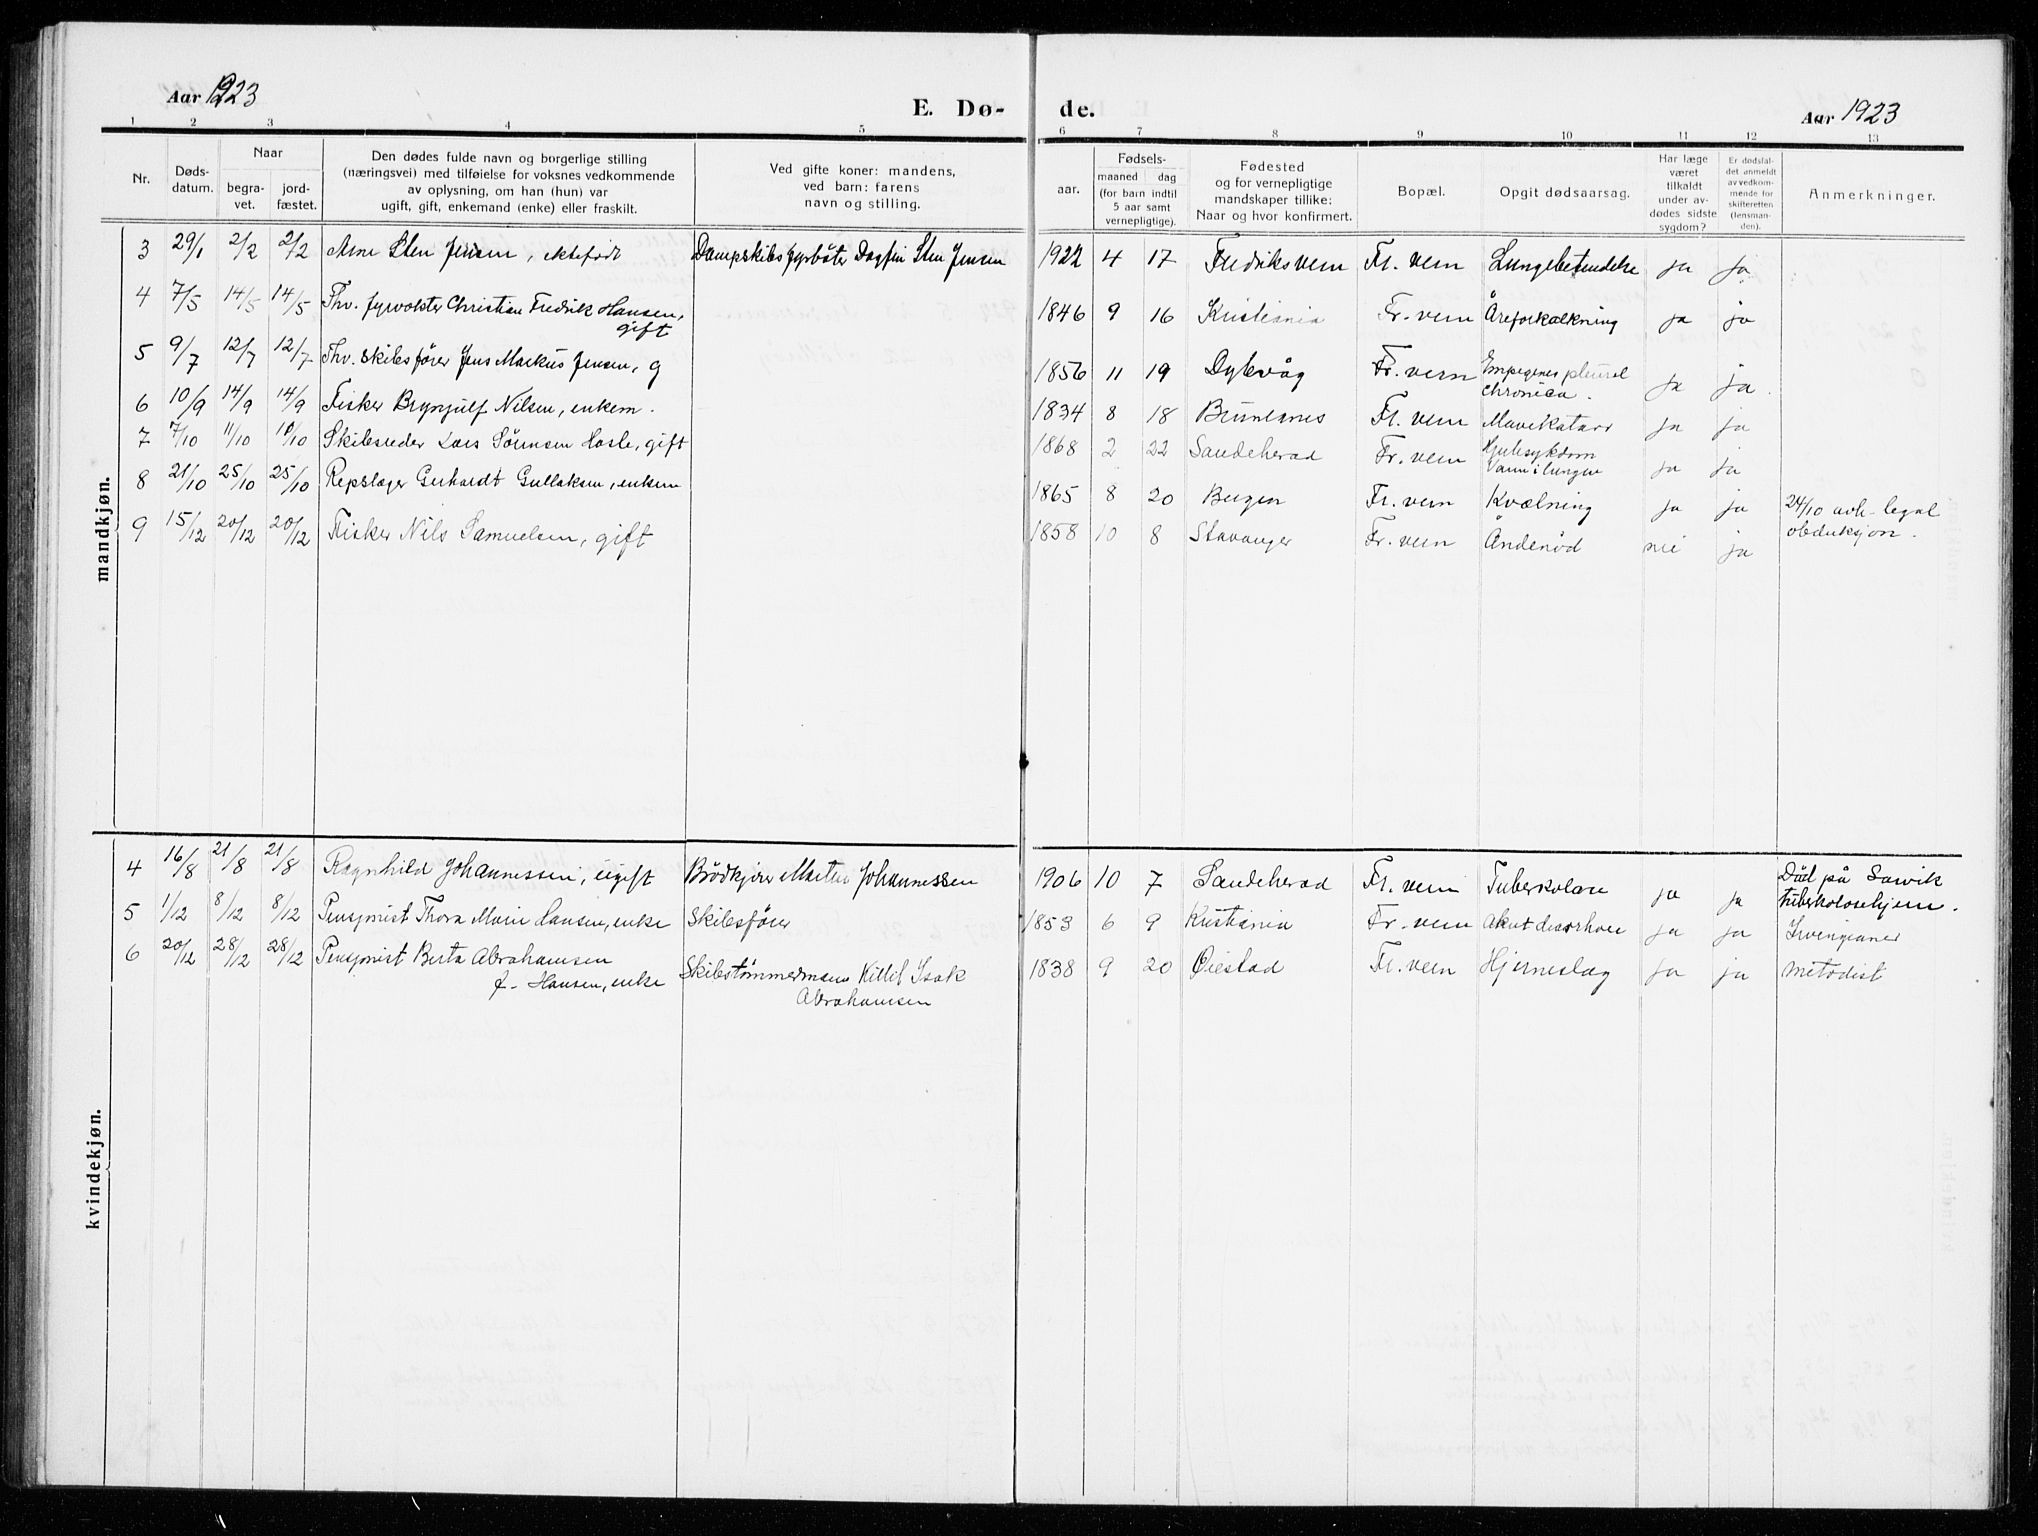 Aar 1923
E. Dø-
de.
Aar 1923
1 2 3 4 5 6 7 8 9 10 11 12 13
Nr.
Døds-
datum.
Naar
begra-
vet.
jord-
fæstet.
Den dødes fulde navn og borgerlige stilling
(næringsvei) med tilføielse for voksnes vedkommende
av oplysning, om han (hun) var
ugift, gift, enkemand (enke) eller fraskilt.
Ved gifte koner: mandens,
ved barn: farens
navn og stilling.
aar.
Fødsels-
maaned dag
(for barn indtil
5 aar samt
vernepligtige).
Fødested
og for vernepligtige
mandskaper tillike:
Naar og hvor konfirmert.
Bopæl.
Opgit dødsaarsag.
Har læge
været
tilkaldt
under av-
dødes sidste
sygdom?
Er dødsfal-
det anmeldt
av vedkom-
mende for
skifteretten
(lensman-
den).
Anmerkninger.
mandkjøn.
3 29/1 2/2 2/2 Arne Sten Jensen, ektefødt Dampskibsfyrbøter Dagfin Sten Jensen 1922 4 17 Fredriksvern Fr. vern Lungebetendelse ja ja
4 7/5 14/5 14/5 Fhv. fyrvokter Christian Fredrik Hansen, 1846 9 16 Kristiania Fr. vern Åreforkalkning ja ja
gift
5 9/7 12/7 12/7 Fhv. skibsfører Jens Markus Jensen, g 1856 11 19 Dybvåg Fr. vern Empyemes pleural ja ja.
chronica.
6 10/9 14/9 14/9 Fisker Brynjulf Nilsen, enkem. 1834 8 18 Brunlanes Fr. vern Mavekatarr ja ja
7 7/10 11/10 11/10 Skibsreder Lars Sörensen Hasle, gift 1868 2 22 Sandeherad Fr. vern Hjertesykdom ja ja
Vann i lungene
8 21/10 25/10 25/10 Repslager Gerhardt Gullaksen, enkem 1865 8 20 Bergen Fr. vern Kvælning ja ja 24/10 avh. legal
obduksjon.
9 15/12 20/12 20/12 Fisker Nils Samuelsen, gift 1858 10 8 Stavanger Fr. vern Åndenød nei ja
kvindekjøn.
4 16/8 21/8 21/8 Ragnhild Johannessen, ugift Brödkjörer Martin Johannessen 1906 10 7 Sandeherad Fr. vern Tuberkolose ja ja Död på Sarvik
tuberkolosehjem.
5 1/12 8/12 8/12 Pensjonist Thora Marie Hansen, enke Skibsförer 1853 6 9 Kristiania Fr. vern Akut diarrhoe ja ja Irvingianer
6 20/12 28/12 28/12 Pensjonist Berta Abrahamsen Skibstömmermann Kittil Isak 1838 9 20 Øiestad Fr. vern Hjerneslag ja ja metodist
f. Hansen, enke Abrahamsen